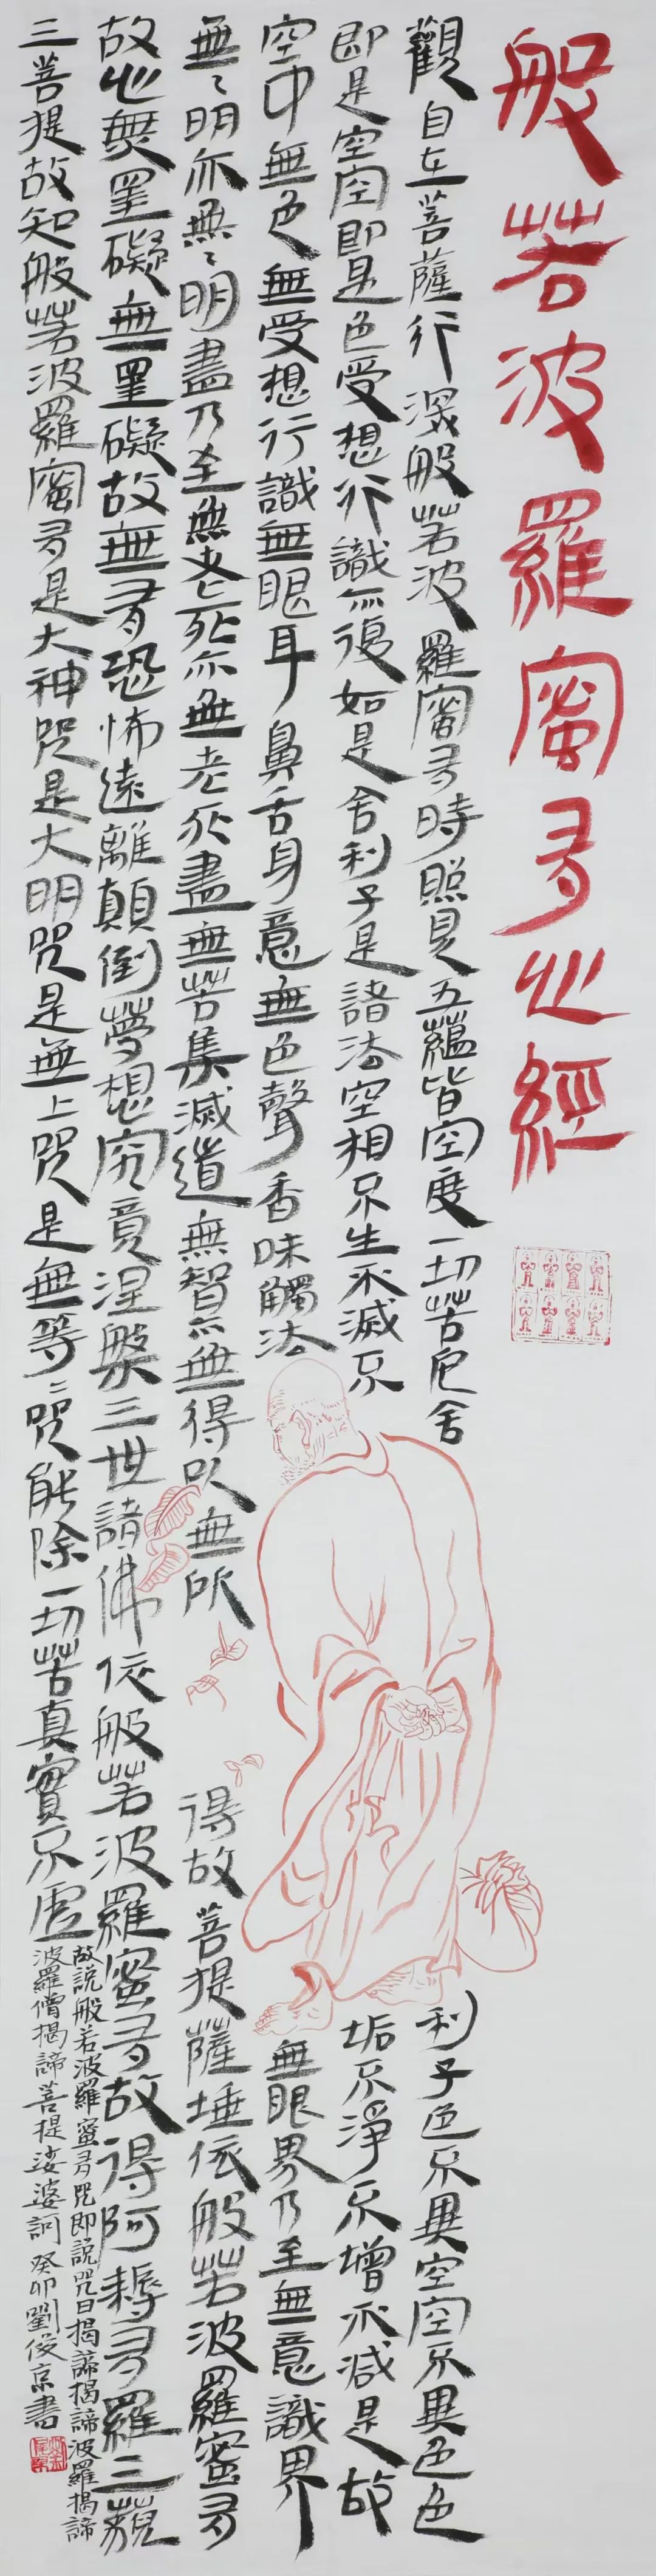 般若波羅蜜多心經
觀自在菩薩行深般若波羅蜜多時照見五蘊皆空度一切苦厄舍利子色不異空空不異色色
即是空空即是色受想行識亦復如是舍利子是諸法空相不生不滅不垢不淨不增不減是故
空中無色無受想行識無眼耳鼻舌身意無色聲香味觸法無眼界乃至無意識界
無〻明亦無〻明盡乃至無老死亦無老死盡無苦集滅道無智亦無得以無所得故菩提薩埵依般若波羅蜜多
故心無罣礙無罣礙故無有恐怖遠離顛倒夢想究竟涅槃三世諸佛依般若波羅蜜多故得阿耨多羅三藐
三菩提故知般若波羅蜜多是大神咒是大明咒是無上咒是無等〻咒能除一切苦真實不虛
故說般若波羅蜜多咒即說咒曰揭諦揭諦波羅揭諦
波羅僧揭諦菩提娑婆訶癸卯劉俊京書